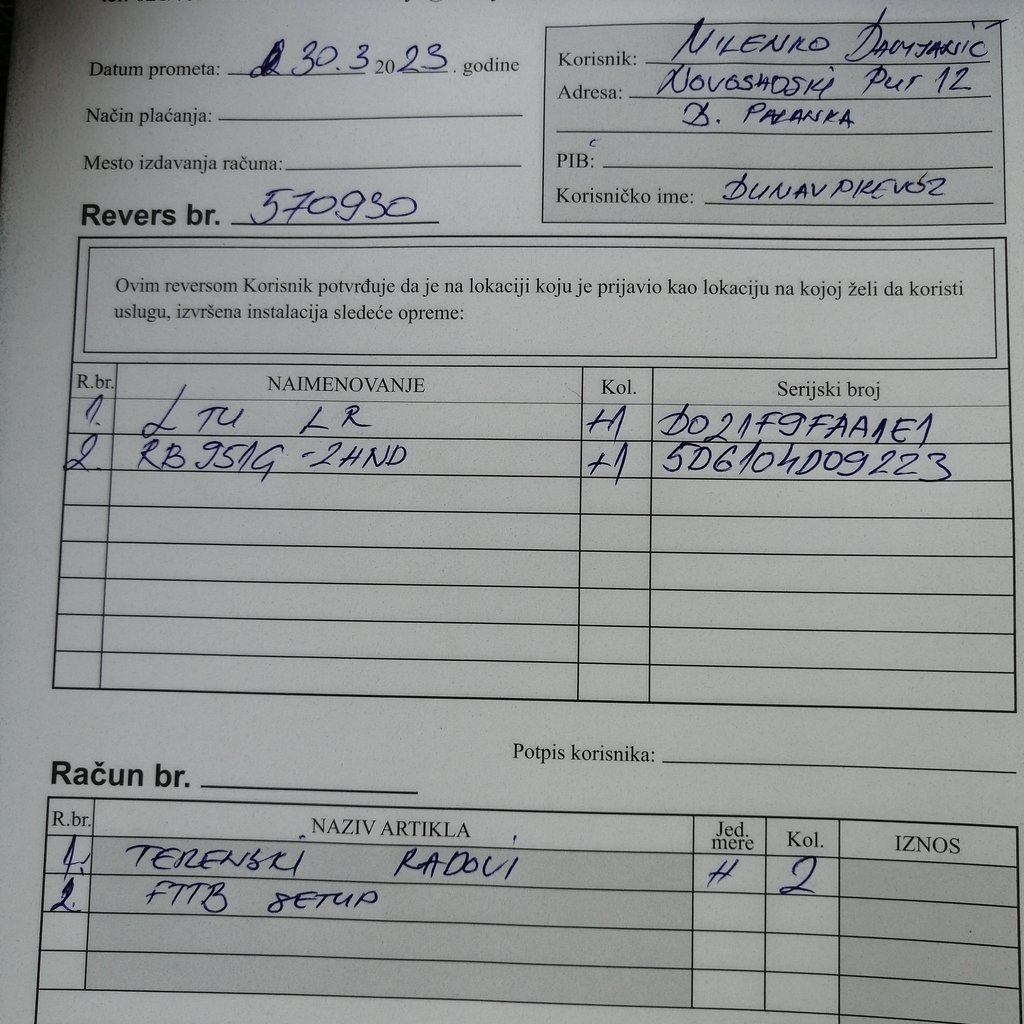 Datum prometa: 30.3 2023. godine
Način plaćanja:
Mesto izdavanja računa:
Revers br. 570930
Korisnik: MILENKO DAMJANIĆ
Adresa: NOVOSADSKI PUT 12
B. PALANKA
PIB:
Korisničko ime: DUNAVPREVOZ
Ovim reversom Korisnik potvrđuje da je na lokaciji koju je prijavio kao lokaciju na kojoj želi da koristi
uslugu, izvršena instalacija sledeće opreme:
R.br. NAIMENOVANJE Kol. Serijski broj
1. LTU LR +1 D021F9FAA1E1
2. RB951G-2HND +1 5D6104D09223
Potpis korisnika:
Račun br.
R.br. NAZIV ARTIKLA Jed. mere Kol. IZNOS
1. TERENSKI RADOVI H 2
2. FTTB SETUP